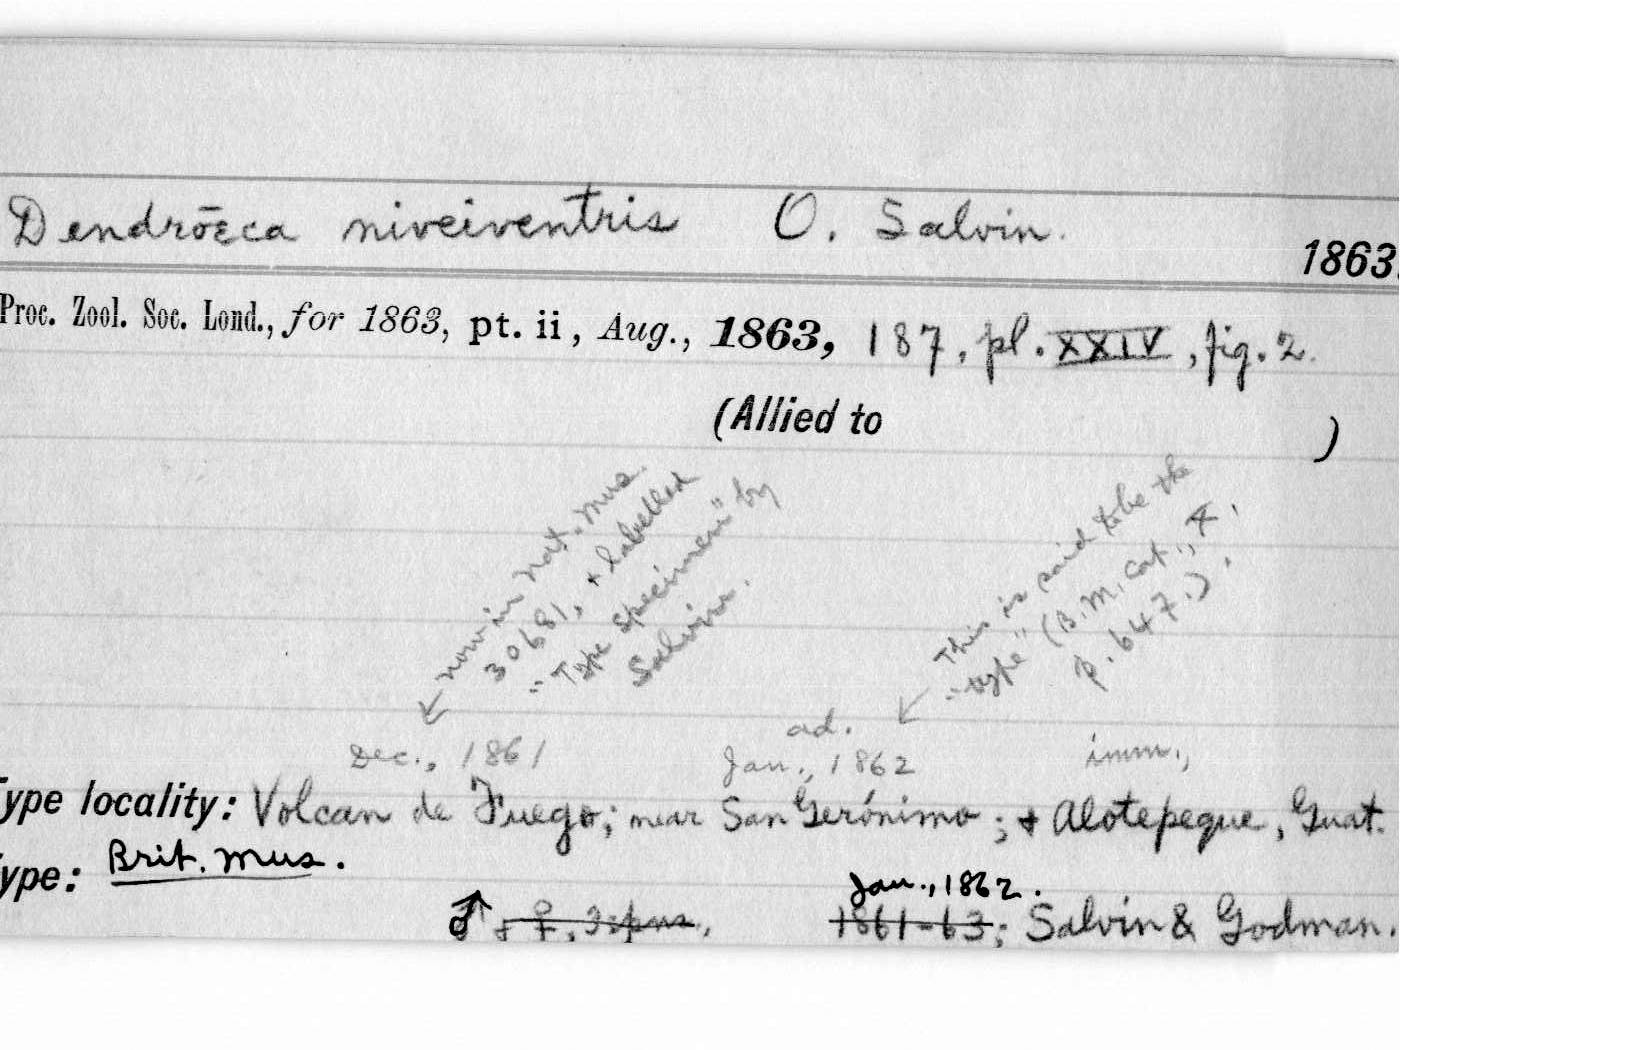 Dendrōeca niveiventris O. Salvin.
1863.
Proc. Zool. Soc. Lond., for 1863, pt. ii, Aug., 1863, 187, pl. XXIV, fig. 2.
(Allied to )
now in Nat. Mus.
30681, + labelled
"Type specimen" by
Salvin.
This is said to be the
"type" (B. M. Cat., X,
p. 647.).
Dec., 1861
ad.
Jan., 1862
imm.,
Type locality: Volcan de Fuego; near San Gerónimo; + Alotepeque, Guat.
ype: Brit. Mus.
Jan., 1862.
♂ + ♀, 3 spns, 1861-63; Salvin & Godman.